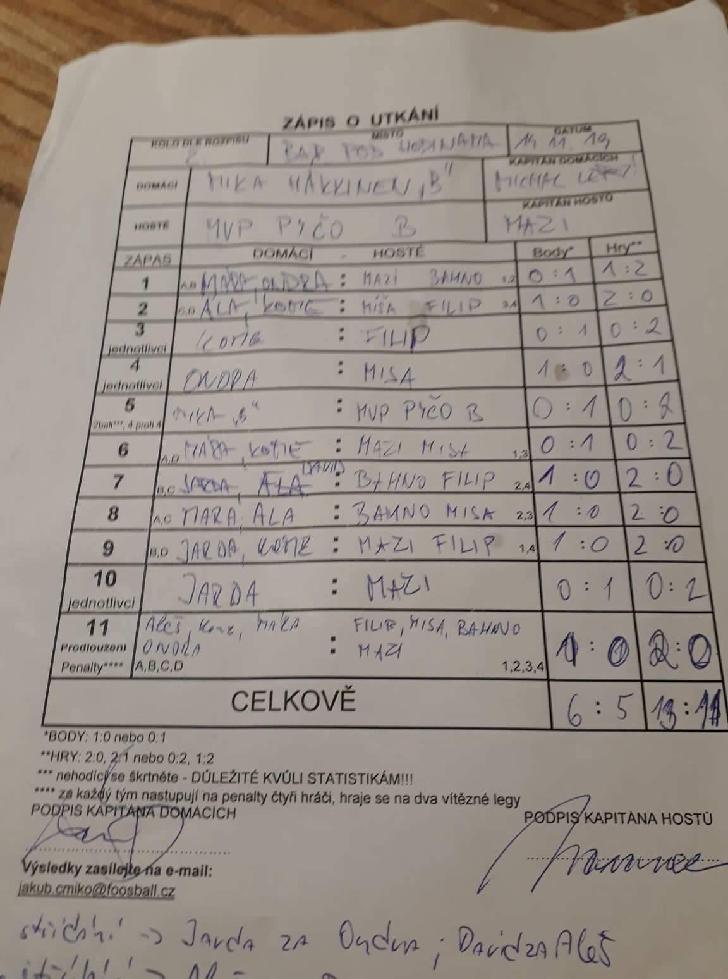 ZÁPIS O UTKÁNÍ
KOLO DLE ROZPISU MÍSTO DATUM
BAR POD HODINAMA 14. 11. 19
DOMÁCÍ MIKA HÄKKINEN „B" KAPITÁN DOMÁCÍCH MICHAL
HOSTÉ MVP PYČO B KAPITÁN HOSTŮ MAZI
ZÁPAS DOMÁCÍ - HOSTÉ Body* Hry**
1 A,B MÁRA, ONDRA : MAZI BAHNO 1,2 0 : 1 1 : 2
2 C,D ÁLA, KOTIE : MÍŠA FILIP 3,4 1 : 0 2 : 0
3 jednotlivci KOTIE : FILIP 0 : 1 0 : 2
4 jednotlivci ONDRA : MISA 1 : 0 2 : 1
5 MIKA „B" : MVP PYČO B 0 : 1 0 : 2
6 A,D MÁRA, KOTIE : MAZI MISA 1,3 0 : 1 0 : 2
7 B,C JARDA, ÁLA (DAVID) : BAHNO FILIP 2,4 1 : 0 2 : 0
8 A,C MARA, ALA : BAHNO MISA 2,3 1 : 0 2 : 0
9 B,D JARDA, KOTIE : MAZI FILIP 1,4 1 : 0 2 : 0
10 jednotlivci JARDA : MAZI 0 : 1 0 : 2
11 Aleš, MÁRA FILIP, MISA, BAHNO
Prodloužení ONDRA : MAZI 1 : 0 2 : 0
Penalty**** A,B,C,D 1,2,3,4
CELKOVĚ 6 : 5 13 : 11
*BODY: 1:0 nebo 0:1
**HRY: 2:0, 2:1 nebo 0:2, 1:2
*** nehodící se škrtněte - DŮLEŽITÉ KVŮLI STATISTIKÁM!!!
**** za každý tým nastupují na penalty čtyři hráči, hraje se na dva vítězné legy
PODPIS KAPITÁNA DOMÁCÍCH PODPIS KAPITÁNA HOSTŮ
Výsledky zasílejte na e-mail:
jakub.cmiko@foosball.cz
střídání -> Jarda za Ondru ; David za Aleš